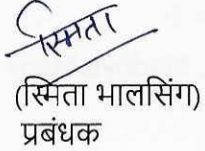 स्मिता
(स्मिता भालसिंग)
प्रबंधक